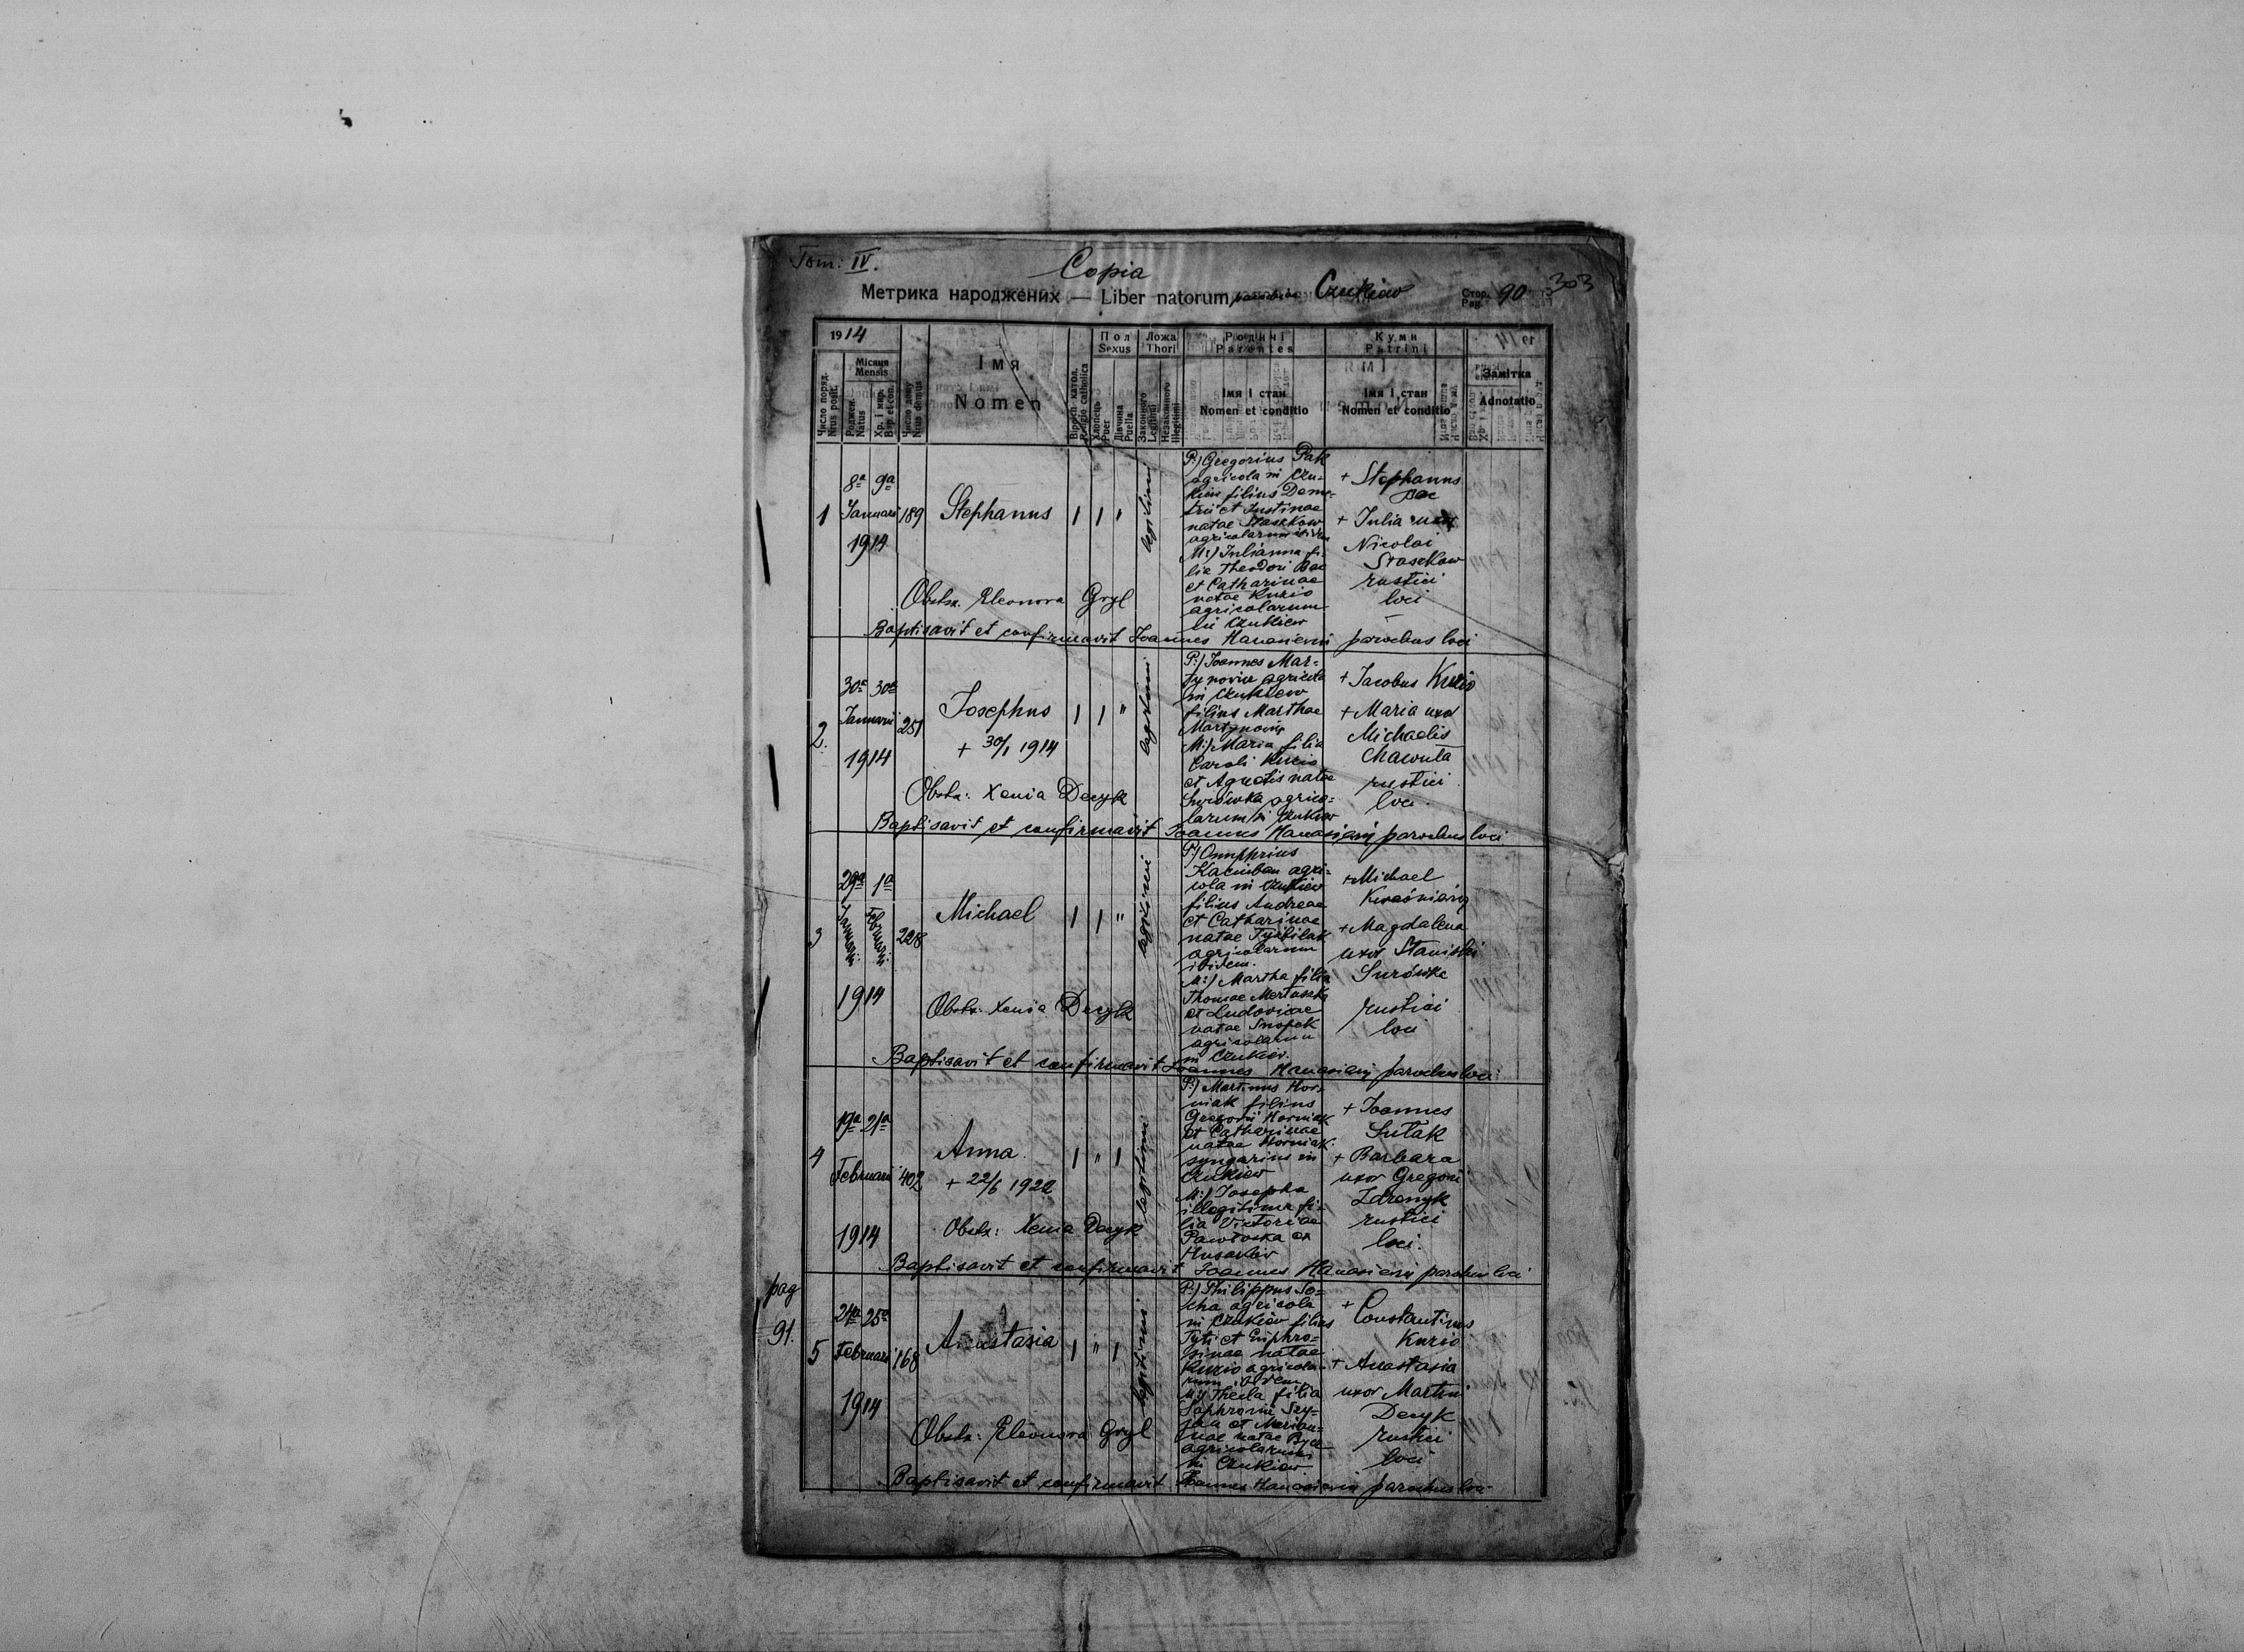 Tom: IV.
Copia
303
Метрика народжених — Liber natorum, parochiae Czukiew
Стор. Pag. 90
1914
Число поряд. Nrus posit.
Місяця Mensis
Роджен. Natus
Хр. і мир. Bapt. et con.
Число дому Nrus domus
Імя Nomen
Віроісп. катол. Religio catholica
Пол Sexus
Хлопець Puer
Дівчина Puella
Ложа Thori
Законного Legitimi
Незаконного Illegitimi
Родичі Parentes
Імя і стан Nomen et conditio
Куми Patrini
Імя і стан Nomen et conditio
Замітка Adnotatio
1
8a 9a
Januarii
1914
189
Stephanus
1 1 "
legitimi
P:) Gregorius Pak
agricola in Czu-
kiew filius Deme-
trii et Justinae
natae Staszkow
agricolarum ibidem
M:) Julianna fi-
lia Theodori Bac
et Catharinae
natae Kuzio
agricolarum
in Czukiew
+ Stephanus
Bac
+ Julia uxor
Nicolai
Staszkow
rustici
loci
Obstx. Eleonora Gryl
Baptisavit et confirmavit Joannes Hanasiewij parochus loci
2.
30a 30a
Januarii
1914
251
Josephus
+ 30/1 1914
1 1 "
legitimi
P:) Joannes Mar-
tynowicz agricola
in Czukiew
filius Marthae
M:) Maria filia
Caroli Kuzio
et Agnetis natae
Surówka agrico-
larum in Czukiew
+ Jacobus Kuzio
+ Maria uxor
Michaelis
rustici
loci.
Obstx: Xenia Decyk
Baptisavit et confirmavit Joannes Hanasiewij parochus loci
3
29a 1a
Januarii Februarii
1914
228
Michael
1 1 "
legitimi
P:) Onuphrius
agri-
cola in Czukiew
filius Andreae
et Catharinae
natae
agricolarum
ibidem.
M:) Martha filia
Thomae
et Ludovicae
natae Snopek
agricolarum
in Czukiew.
+ Michael
+ Magdalena
uxor Stanislai
Surówka
rustici
loci
Obstx: Xenia Decyk
Baptisavit et confirmavit Joannes Hanasiewij parochus loci
4
19a 21a
Februarii
1914
402
Anna
+ 22/6 1922
1 " 1
legitimi
P:) Martinus Hor-
niak filius
Gregorii Horniak
et Catharinae
natae Horniak
in
Czukiew
M:) Josepha
illegitima fi-
lia Victoriae
ex
Husaków
+ Joannes
Sutak
+ Barbara
uxor Gregorii
rustici
loci.
Obstx: Xenia Decyk
Baptisavit et confirmavit Joannes Hanasiewij parochus loci
pag
91.
5
24a 25a
Februarii
1914
168
Anastasia
1 " 1
legitimi
P:) Philippus So-
cha agricola
in Czukiew filius
Tyti et Euphro-
sinae natae
Kuzio agricola-
rum ibidem
M:) Thecla filia
et Marian-
nae natae
agricolarum
in Czukiew
+ Constantinus
Kuzio
+ Anastasia
uxor Martini
Decyk
rustici
loci
Obstx: Eleonora Gryl
Baptisavit et confirmavit Joannes Hanasiewij parochus loci